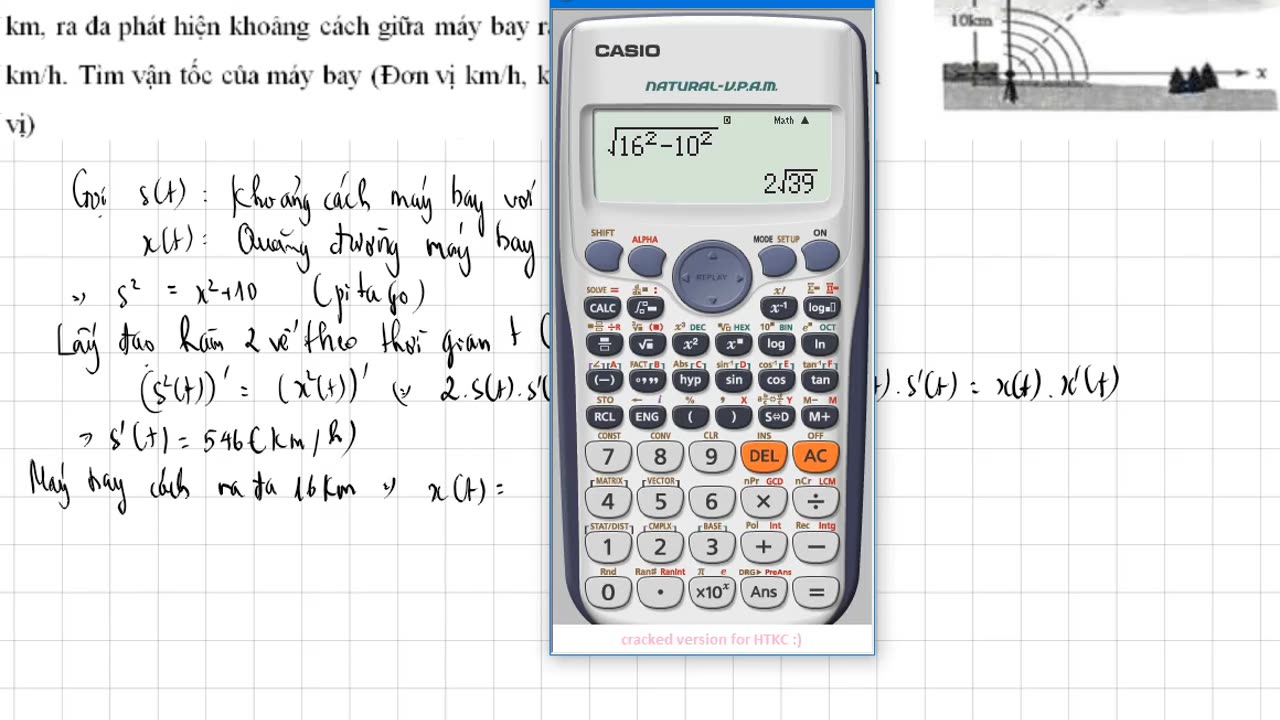 km, ra đa phát hiện khoảng cách giữa máy bay
km/h. Tìm vận tốc của máy bay (Đơn vị km/h,
vị)
10km
s
x
Gọi s(t) : Khoảng cách máy bay với
x(t) : Quãng đường máy bay
=> s² = x²+10 (pitago)
Lấy đạo hàm 2 vế theo thời gian t (
(s²(t))' = (x²(t))' (=> 2.s(t).s'(
).s'(t) = x(t).x'(t)
=> s'(t) = 546 (km/h)
Máy bay cách ra đa 16km => x(t) =
CASIO
NATURAL-V.P.A.M.
D Math ▲
√16²-10²
2√39
SHIFT ALPHA MODE SETUP ON
REPLAY
SOLVE = d/dx : x! Σ= Π=
CALC ∫ x⁻¹ log
÷R ³√ x³ DEC √ HEX 10■ BIN e■ OCT
√■ x² x■ log ln
∠ A FACT B Abs C sin⁻¹ D cos⁻¹ E tan⁻¹ F
(−) °,,, hyp sin cos tan
STO ← i % , X Y M− M
RCL ENG ( ) S⇔D M+
CONST CONV CLR INS OFF
7 8 9 DEL AC
MATRIX VECTOR nPr GCD nCr LCM
4 5 6 × ÷
STAT/DIST CMPLX BASE Pol Int Rec Intg
1 2 3 + −
Rnd Ran# RanInt π e DRG▶ PreAns
0 . ×10ˣ Ans =
cracked version for HTKC :)